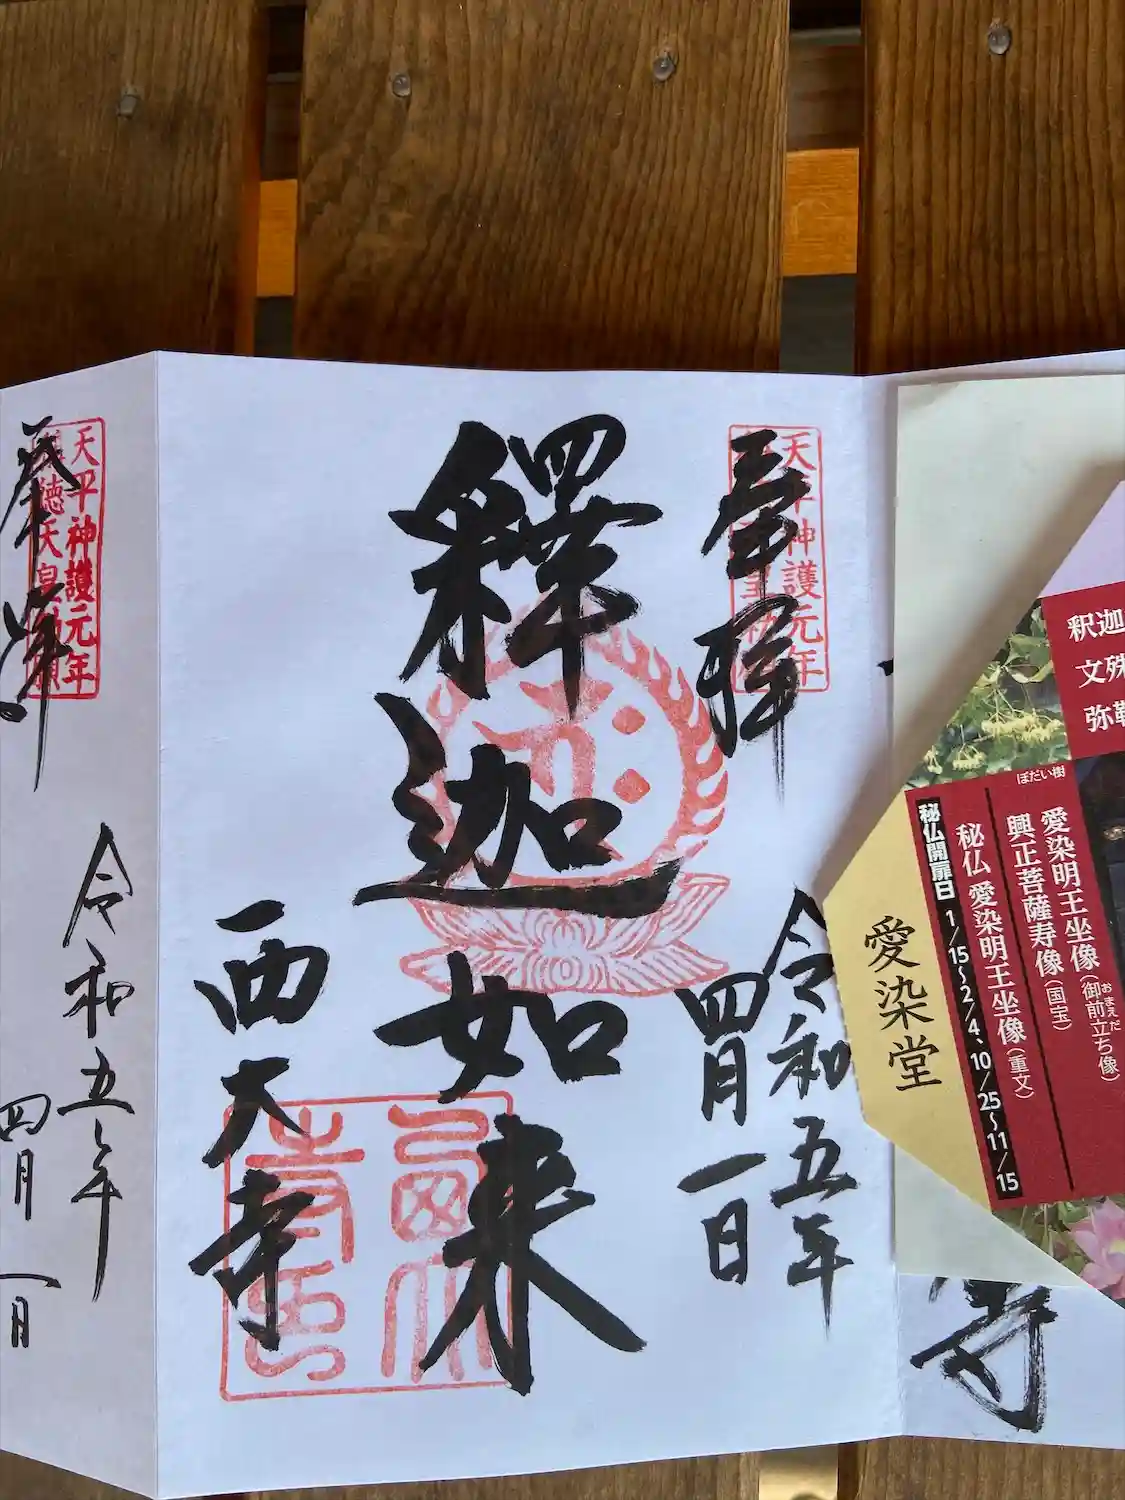 奉拝
天平神護元年
令和五年
四月一日
釋迦如来
西大寺
天平神護元年
徳天皇
奉拝
令和五年
四月一日
寺
釈迦
文殊
弥勒
ぼだい樹
愛染明王坐像(御前立ち像)
おまえだ
興正菩薩寿像(国宝)
秘仏 愛染明王坐像(重文)
秘仏開扉日 1/15～2/4、10/25～11/15
愛染堂